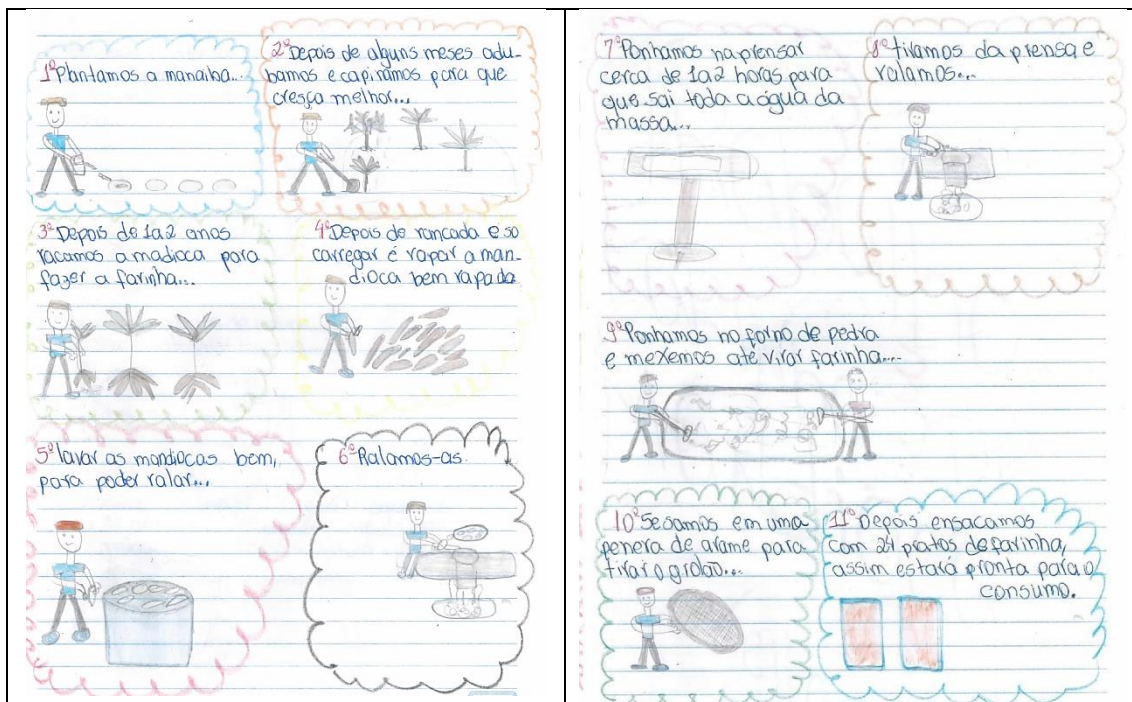 1º Plantamos a manaiba...
2º Depois de alguns meses adu-
bamos e capinamos para que
cresça melhor...
3º Depois de 1a2 anos
racamos a madioca para
fazer a farinha...
4º Depois de rancada e so
carregar é rapar a man-
dioca bem rapada
5º lavar as mandiocas bem,
para poder ralar...
6º Ralamos-as
7º Ponhamos na prensar
cerca de 1a2 horas para
que sai toda a água da
massa...
8º tiramos da prensa e
ralamos...
9º Ponhamos no forno de pedra
e mexemos até virar farinha...
10º Sesamos em uma
penera de arame para
tirar o grolão...
11º Depois ensacamos
com 24 pratos de farinha,
assim estará pronta para o
consumo.